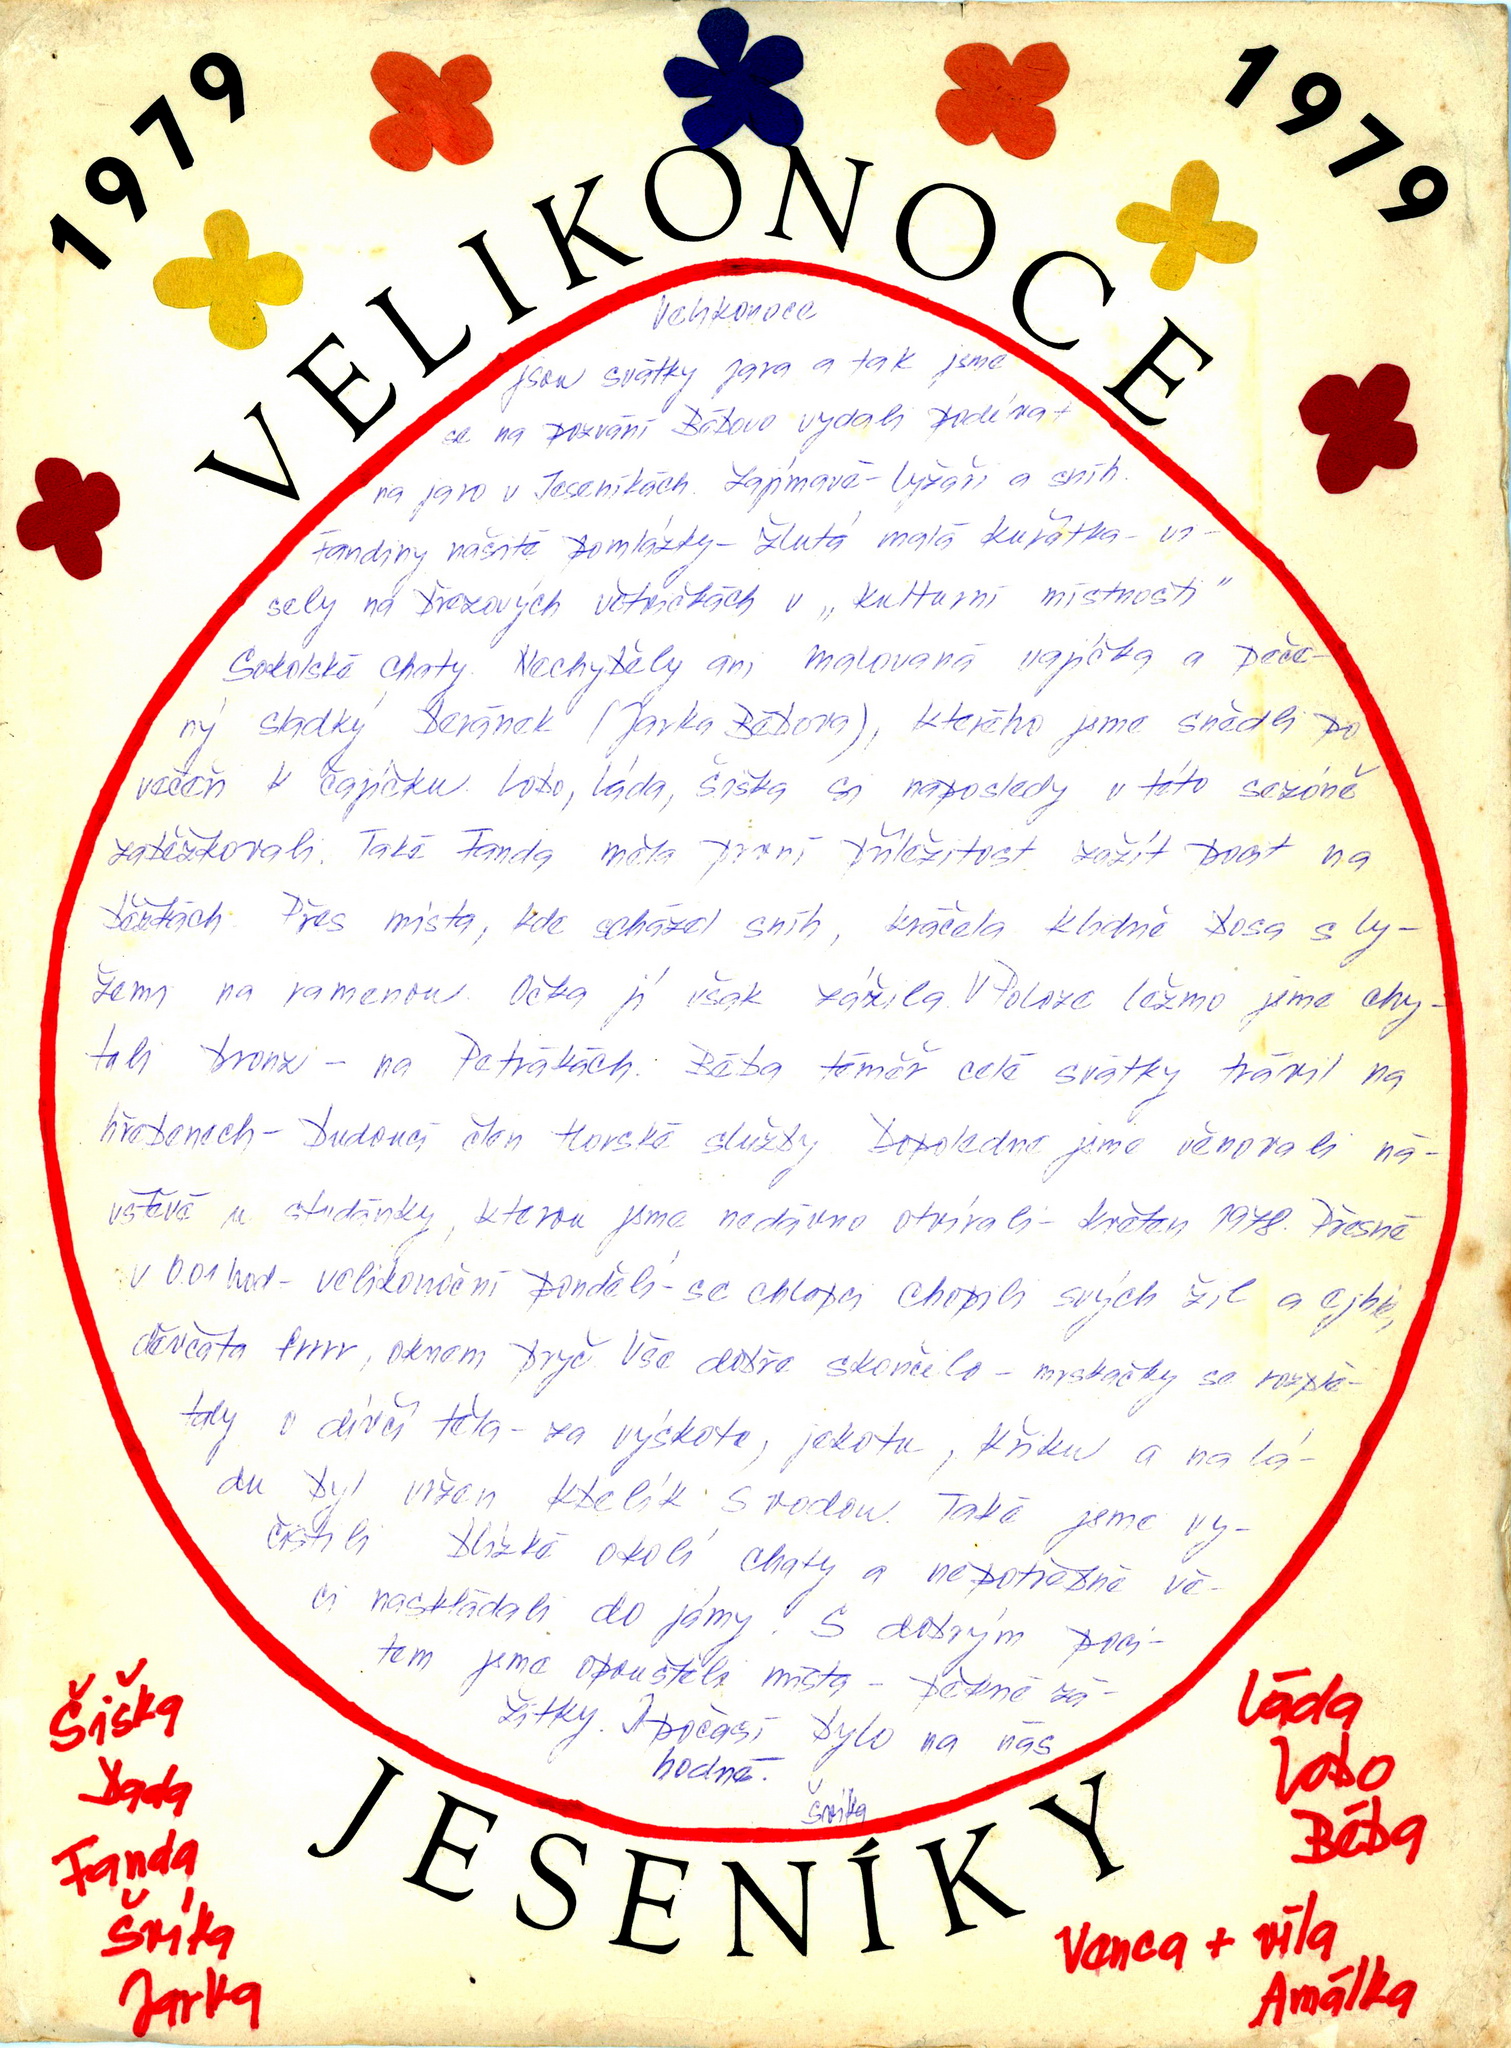 1979
1979
VELIKONOCE
Velikonoce
jsou svátky jara a tak jsme
se na pozvání Bébovo vydali podívat
na jaro v Jeseníkách. Zajímavé - lyžaři a sníh.
Fandiny našité pomlázky - žlutá malá kuřátka - vi-
sely na březových větvičkách v „kulturní místnosti"
Sokolské chaty. Nechyběly ani malovaná vajíčka a peče-
ný sladký beránek (Jarka Bébova), kterého jsme snědli po
večeři k čajíčku. Lobo, Láda, Šiška si naposledy v této sezóně
zaběžkovali. Také Fanda měla první příležitost zažít pocit na
běžkách. Přes místa, kde scházel sníh, kráčela klidně bosa s ly-
žemi na ramenou. Očka jí však zářila. V Poloze ležmo jsme chy-
tali bronz - na Petrákách. Béba téměř celé svátky trávil na
hřebenech - budoucí člen Horské služby. Dopoledne jsme věnovali ná-
vštěvě u studánky, kterou jsme nedávno otvírali - květen 1978. Přesně
v 0.01 hod - velikonoční pondělí - se chlapci chopili svých žil a ejhle,
děvčata frrrr, oknem pryč. Vše dobře skončilo - mrskačky se rozplé-
taly o dívčí těla - za výskotu, jekotu, křiku a na Lá-
du byl vržen kbelík s vodou. Také jsme vy-
čistili blízké okolí chaty a nepotřebné vě-
ci naskládali do jámy. S dobrým poci-
tem jsme opouštěli místa - pěkné zá-
žitky. I počasí bylo na nás
hodné.
Švíka
JESENÍKY
Šiška
Dada
Fanda
Švíka
Jarka
Láda
Lobo
Béba
Venca + víla
Amálka